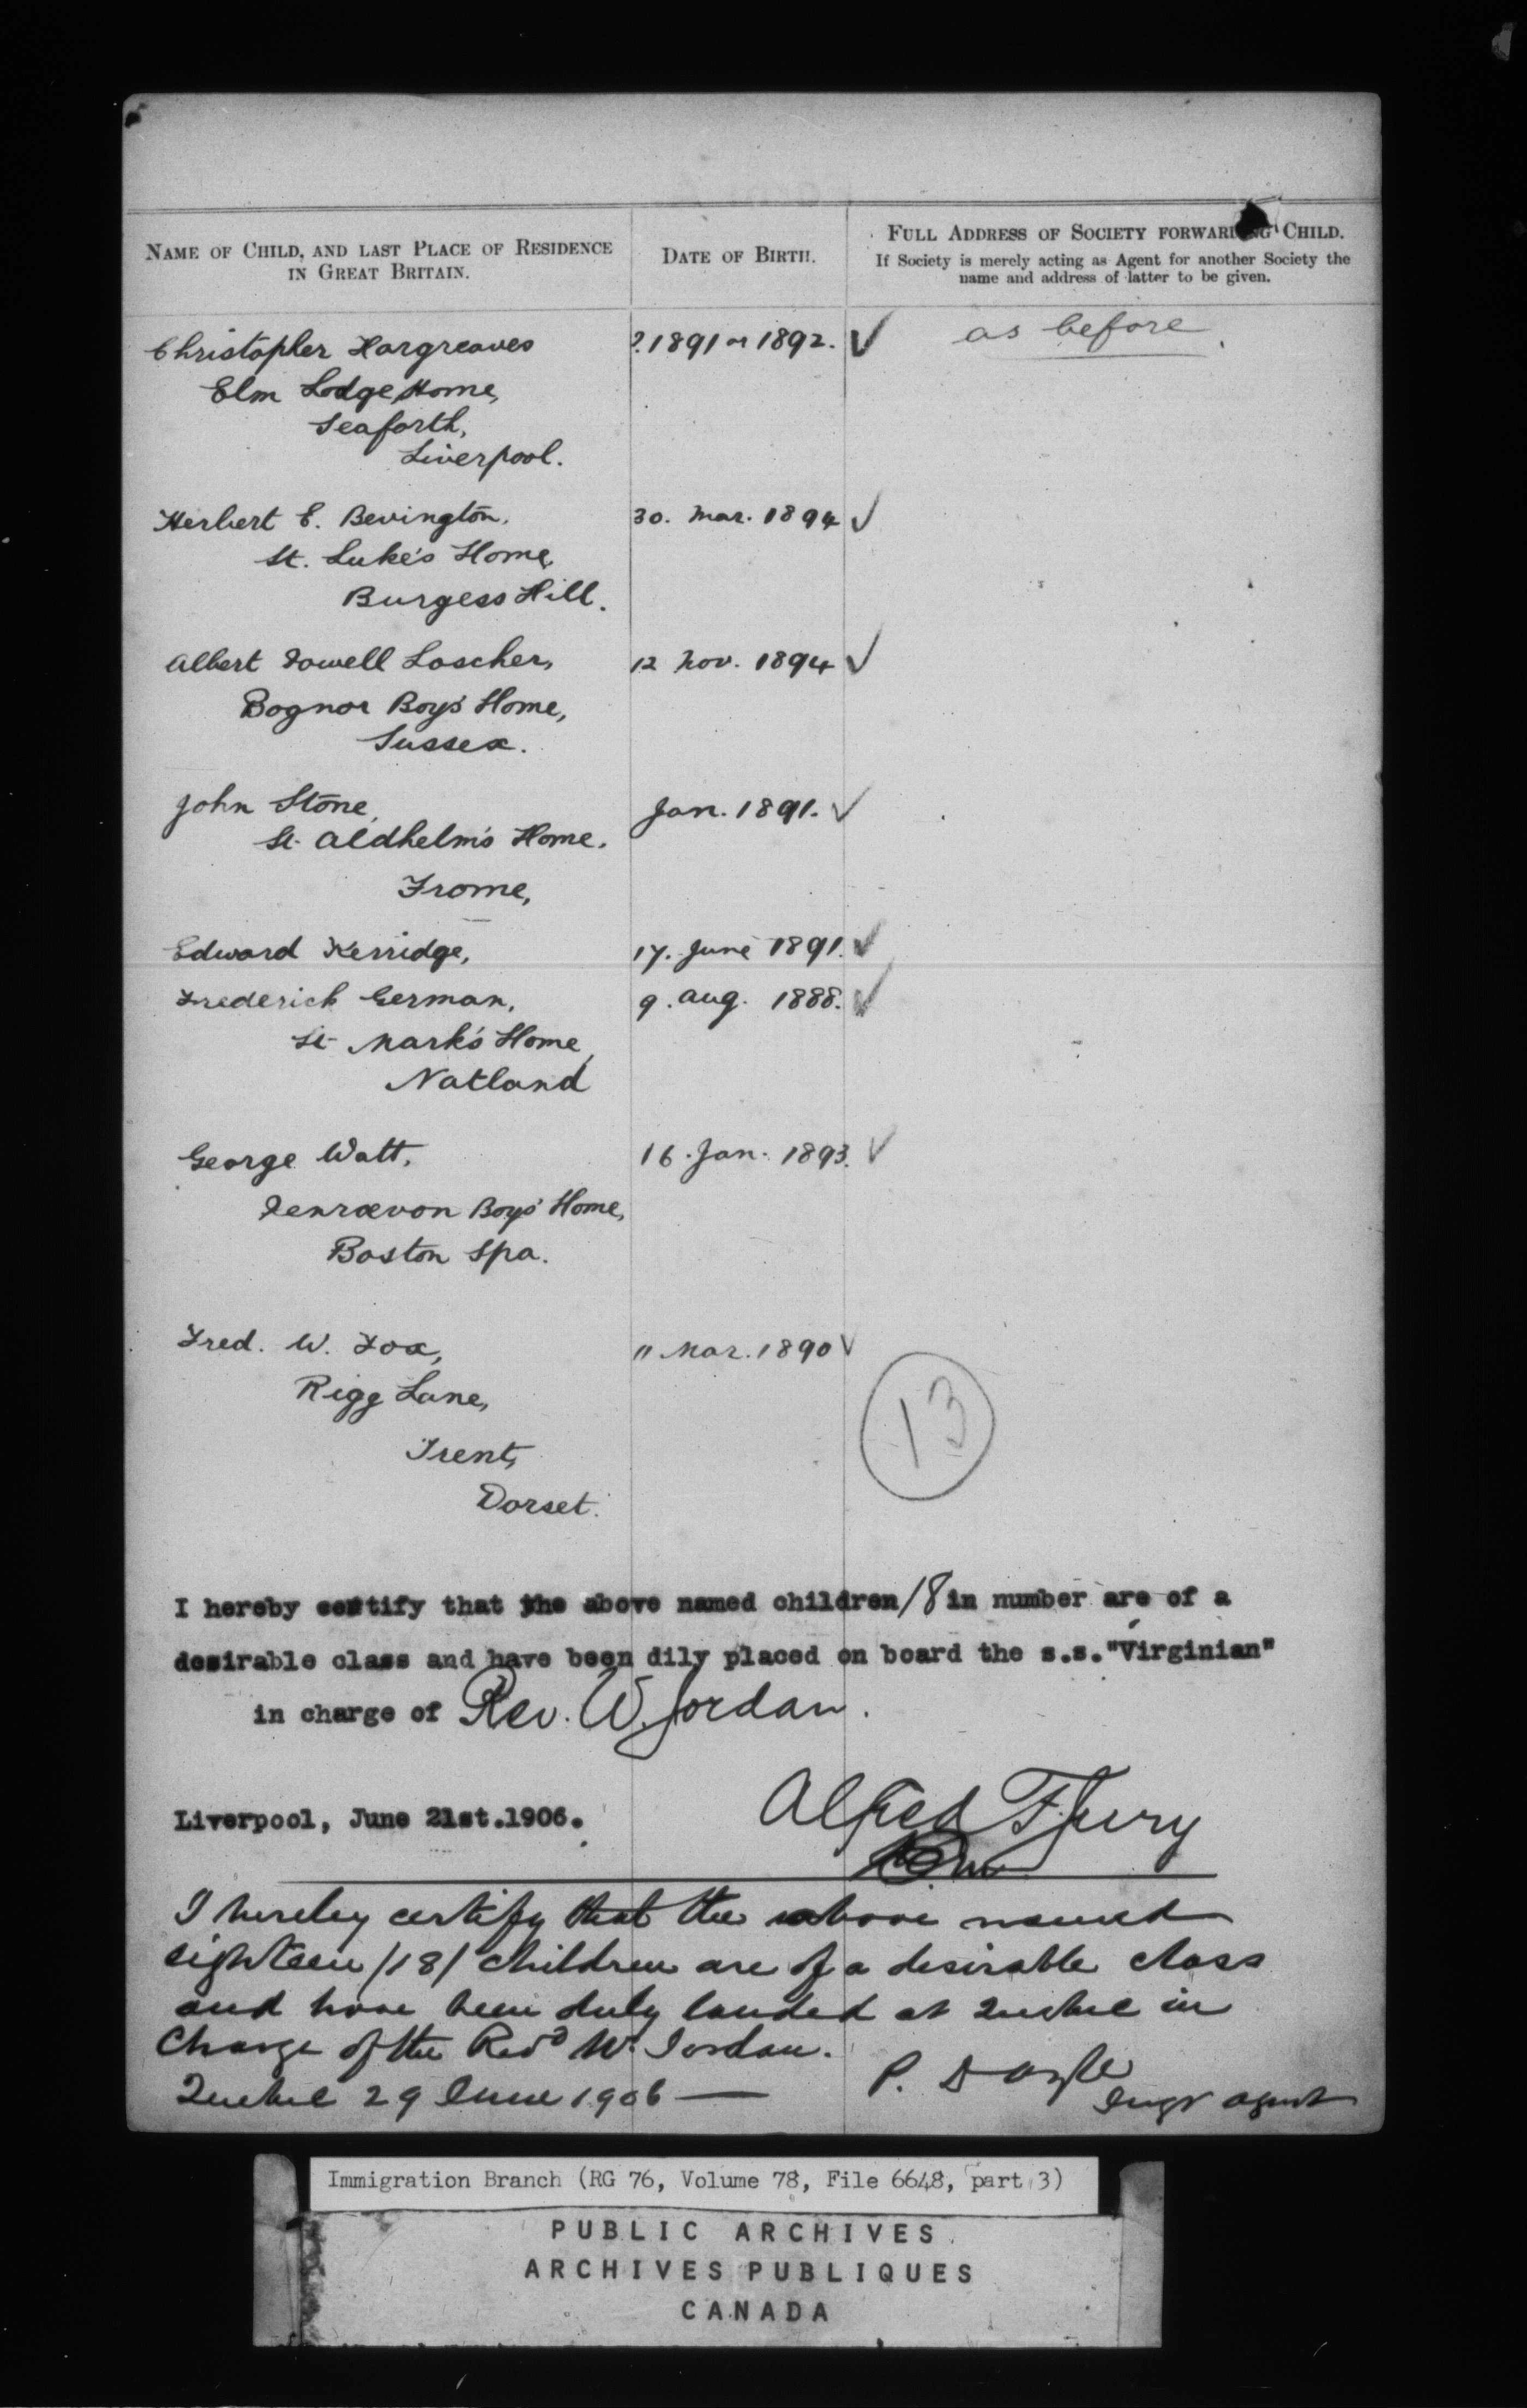 NAME OF CHILD, AND LAST PLACE OF RESIDENCE
IN GREAT BRITAIN.
DATE OF BIRTH.
FULL ADDRESS OF SOCIETY FORWARDING CHILD.
If Society is merely acting as Agent for another Society the
name and address of latter to be given.
Christopher Hargreaves ? 1891 or 1892. ✓ as before
Elm Lodge Home,
Seaforth,
Liverpool.
Herbert E. Bevington, 30. Mar. 1894 ✓
St. Luke's Home,
Burgess Hill.
Albert Lascher, 12 Nov. 1894 ✓
Bognor Boys' Home,
Sussex.
John Stone, Jan. 1891. ✓
St. Aldhelm's Home,
Frome,
Edward Kerridge, 17. June 1891. ✓
Frederick German, 9. Aug. 1888. ✓
St. Mark's Home,
Natland
George Watt, 16. Jan. 1893. ✓
Boys' Home,
Boston Spa.
Fred. W. Fox, 11 Mar. 1890 ✓
Rigg Lane,
Trent,
Dorset.
13
I hereby certify that the above named children /8 in number are of a
desirable class and have been dily placed on board the s.s."Virginian"
in charge of Rev. W. Jordan.
Liverpool, June 21st.1906.
Alfred F. Jury
I hereby certify that the above named
eighteen /18/ children are of a desirable class
and have been duly landed at Quebec in
Charge of the Revd W. Jordan.
Quebec 29 June 1906 — P. Doyle
Agent
Immigration Branch (RG 76, Volume 78, File 6648, part 3)
PUBLIC ARCHIVES
ARCHIVES PUBLIQUES
CANADA